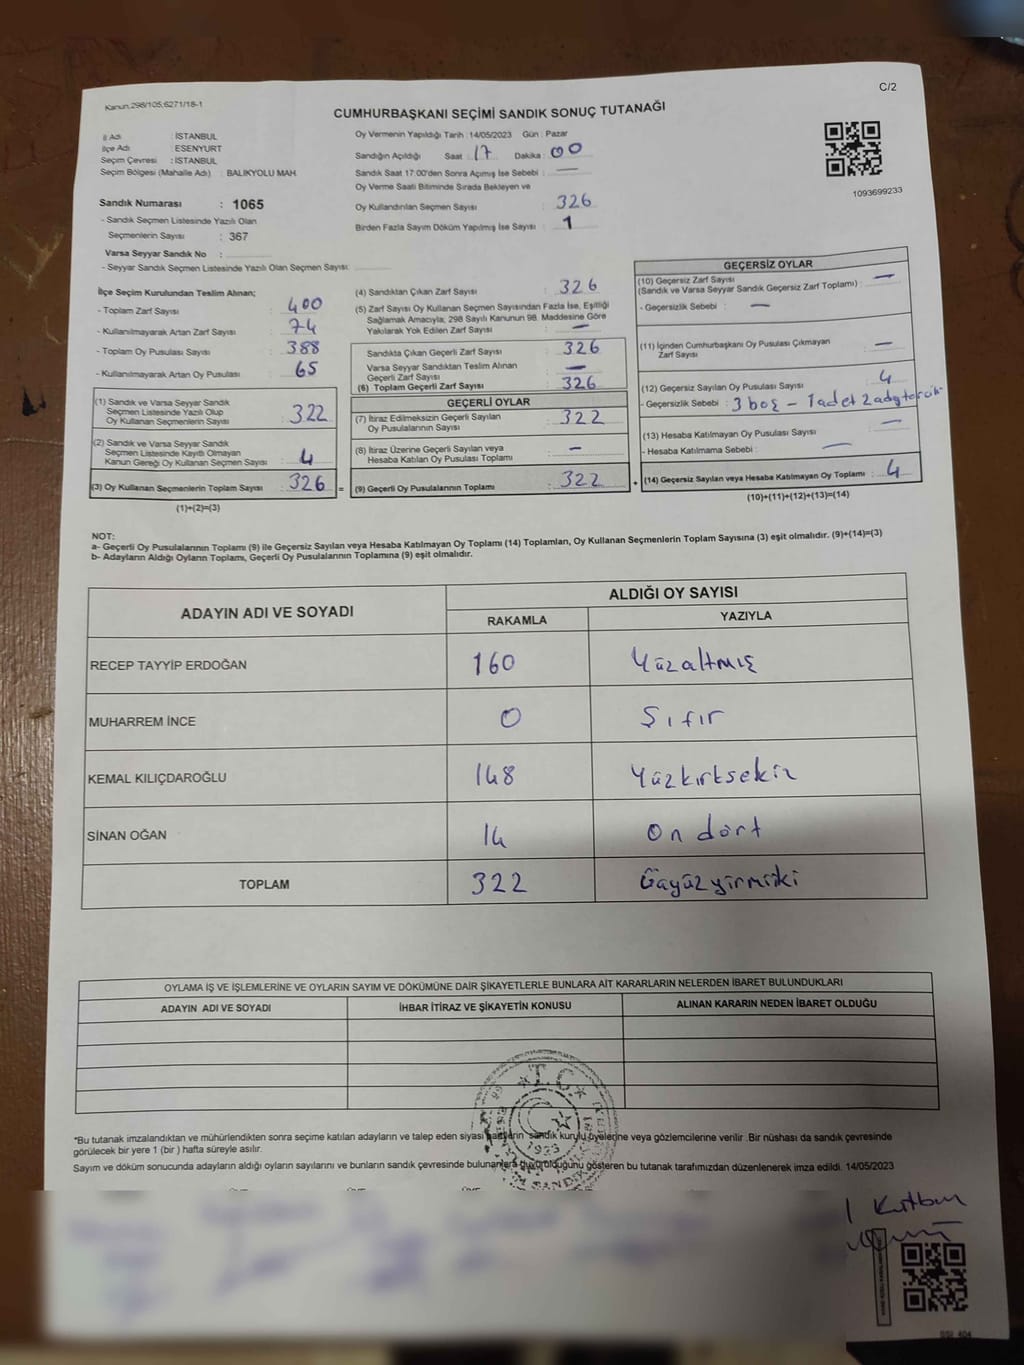 Kanun,298/105;6271/18-1
C/2
CUMHURBAŞKANI SEÇİMİ SANDIK SONUÇ TUTANAĞI
İl Adı : İSTANBUL
İlçe Adı : ESENYURT
Seçim Çevresi : İSTANBUL
Seçim Bölgesi (Mahalle Adı) : BALIKYOLU MAH.
Sandık Numarası : 1065
- Sandık Seçmen Listesinde Yazılı Olan
Seçmenlerin Sayısı : 367
Varsa Seyyar Sandık No :
- Seyyar Sandık Seçmen Listesinde Yazılı Olan Seçmen Sayısı:
Oy Vermenin Yapıldığı Tarih :14/05/2023 Gün : Pazar
Sandığın Açıldığı Saat : 17 Dakika : 00
Sandık Saat 17:00'den Sonra Açımış İse Sebebi : —
Oy Verme Saati Bitiminde Sırada Bekleyen ve
Oy Kullandırılan Seçmen Sayısı : 326
Birden Fazla Sayım Döküm Yapılmış İse Sayısı : 1
1093699233
İlçe Seçim Kurulundan Teslim Alınan;
- Toplam Zarf Sayısı : 400
- Kullanılmayarak Artan Zarf Sayısı : 74
- Toplam Oy Pusulası Sayısı : 388
- Kullanılmayarak Artan Oy Pusulası : 65
(1) Sandık ve Varsa Seyyar Sandık
Seçmen Listesinde Yazılı Olup
Oy Kullanan Seçmenlerin Sayısı : 322
(2) Sandık ve Varsa Seyyar Sandık
Seçmen Listesinde Kayıtlı Olmayan
Kanun Gereği Oy Kullanan Seçmen Sayısı : 4
(3) Oy Kullanan Seçmenlerin Toplam Sayısı : 326 =
(1)+(2)=(3)
(4) Sandıktan Çıkan Zarf Sayısı : 326
(5) Zarf Sayısı Oy Kullanan Seçmen Sayısından Fazla İse, Eşitliği
Sağlamak Amacıyla; 298 Sayılı Kanunun 98. Maddesine Göre
Yakılarak Yok Edilen Zarf Sayısı : —
Sandıkta Çıkan Geçerli Zarf Sayısı : 326
Varsa Seyyar Sandıktan Teslim Alınan
Geçerli Zarf Sayısı : —
(6) Toplam Geçerli Zarf Sayısı : 326
GEÇERLİ OYLAR
(7) İtiraz Edilmeksizin Geçerli Sayılan
Oy Pusulalarının Sayısı : 322
(8) İtiraz Üzerine Geçerli Sayılan veya
Hesaba Katılan Oy Pusulası Toplamı : —
(9) Geçerli Oy Pusulalarının Toplamı : 322 +
GEÇERSİZ OYLAR
(10) Geçersiz Zarf Sayısı
(Sandık ve Varsa Seyyar Sandık Geçersiz Zarf Toplamı) : —
- Geçersizlik Sebebi : —
(11) İçinden Cumhurbaşkanı Oy Pusulası Çıkmayan
Zarf Sayısı : —
(12) Geçersiz Sayılan Oy Pusulası Sayısı : 4
- Geçersizlik Sebebi : 3 boş - 1 adet 2 aday tercih
(13) Hesaba Katılmayan Oy Pusulası Sayısı : —
- Hesaba Katılmama Sebebi : —
(14) Geçersiz Sayılan veya Hesaba Katılmayan Oy Toplamı : 4
(10)+(11)+(12)+(13)=(14)
NOT:
a- Geçerli Oy Pusulalarının Toplamı (9) ile Geçersiz Sayılan veya Hesaba Katılmayan Oy Toplamı (14) Toplamları, Oy Kullanan Seçmenlerin Toplam Sayısına (3) eşit olmalıdır. (9)+(14)=(3)
b- Adayların Aldığı Oyların Toplamı, Geçerli Oy Pusulalarının Toplamına (9) eşit olmalıdır.
ADAYIN ADI VE SOYADI ALDIĞI OY SAYISI
RAKAMLA YAZIYLA
RECEP TAYYİP ERDOĞAN 160 Yüzaltmış
MUHARREM İNCE 0 Sıfır
KEMAL KILIÇDAROĞLU 148 Yüzkırksekiz
SİNAN OĞAN 14 On dört
TOPLAM 322 Üçyüzyirmiiki
OYLAMA İŞ VE İŞLEMLERİNE VE OYLARIN SAYIM VE DÖKÜMÜNE DAİR ŞİKAYETLERLE BUNLARA AİT KARARLARIN NELERDEN İBARET BULUNDUKLARI
ADAYIN ADI VE SOYADI İHBAR İTİRAZ VE ŞİKAYETİN KONUSU ALINAN KARARIN NEDEN İBARET OLDUĞU
T.C.
1923
*Bu tutanak imzalandıktan ve mühürlendikten sonra seçime katılan adayların ve talep eden siyasi partilerin sandık kurulu üyelerine veya gözlemcilerine verilir .Bir nüshası da sandık çevresinde
görülecek bir yere 1 (bir ) hafta süreyle asılır.
Sayım ve döküm sonucunda adayların aldığı oyların sayılarını ve bunların sandık çevresinde bulunanlara duyurulduğunu gösteren bu tutanak tarafımızdan düzenlenerek imza edildi. 14/05/2023